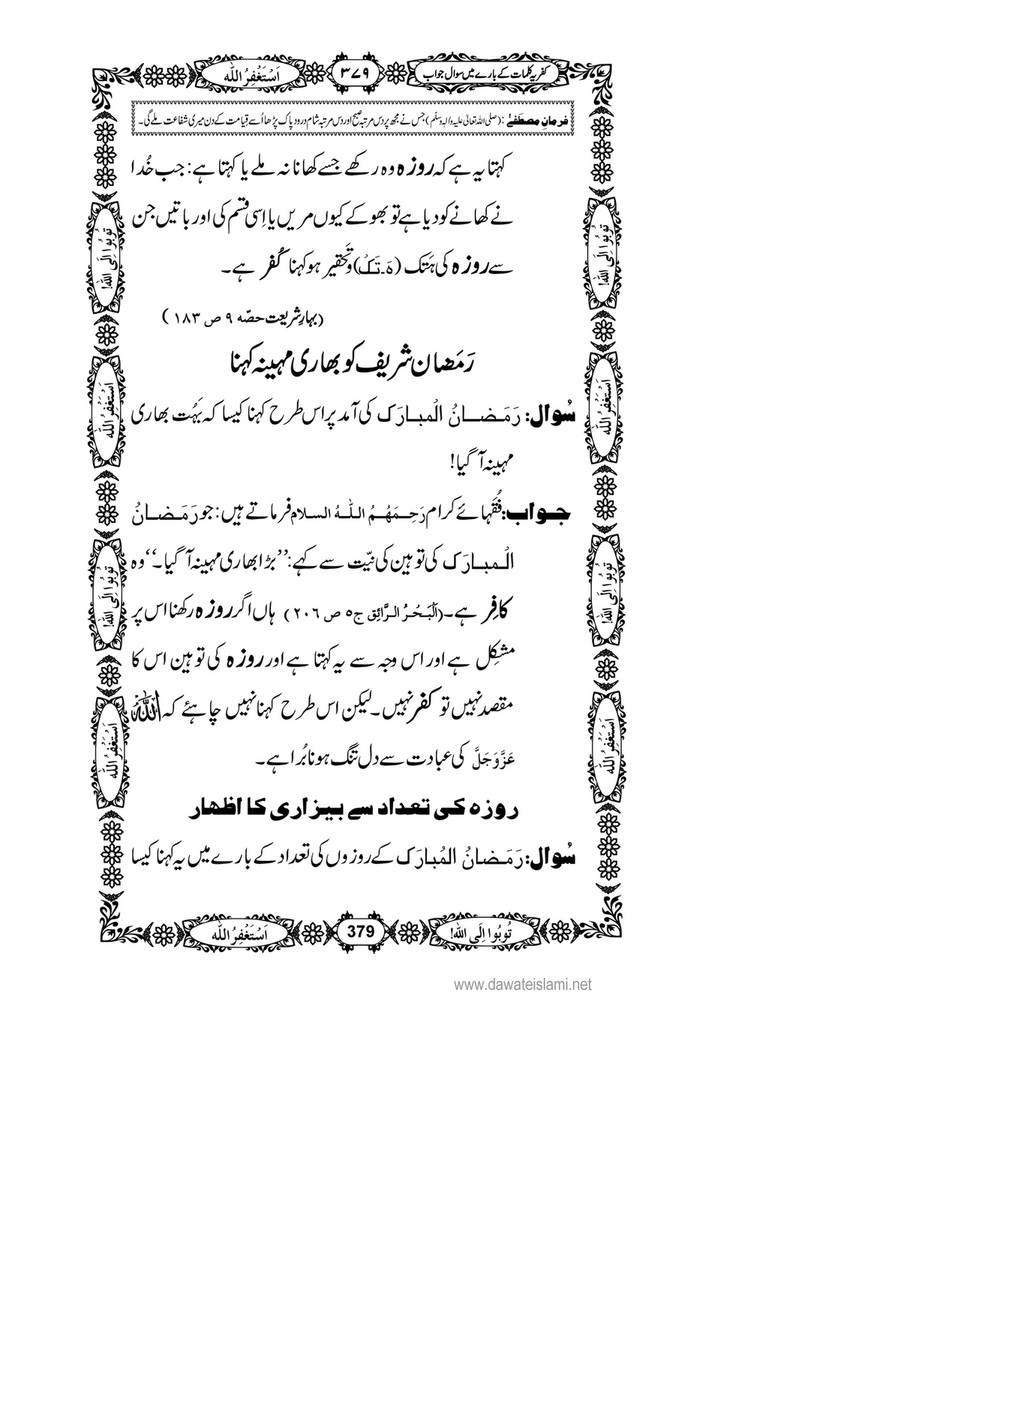 کفریہ کلمات کے بارے میں سوال جواب
۳۷۹
اَسْتَغْفِرُ اللّٰه
فرمانِ مصطفےٰ : (صلی اللہ تعالیٰ علیہ والہٖ وسلّم) جس نے مجھ پر دس مرتبہ صبح اور دس مرتبہ شام درود پاک پڑھا اُسے قیامت کے دن میری شفاعت ملے گی۔
کہتا یہ ہے کہ روزہ وہ رکھے جسے کھانا نہ ملے یا کہتا ہے: جب خُدا
نے کھانے کو دیا ہے تو بھوکے کیوں مریں یا اِسی قسم کی اور باتیں جن
سے روزہ کی ہَتک (ہَ۔تَک) وتَحقیر ہو کہنا کُفر ہے۔
(بہارِشریعت حصّہ ۹ ص ۱۸۳)
رَمَضان شریف کو بھاری مہینہ کہنا
سُوال: رَمَضانُ الْمبارَک کی آمد پر اس طرح کہنا کیسا کہ بَہُت بھاری
مہینہ آ گیا!
جواب: فُقَہائے کرام رَحِمَهُمُ اللّٰهُ السلام فرماتے ہیں: جو رَمَضانُ
الْمبارَک کی توہین کی نیّت سے کہے: ’’بڑا بھاری مہینہ آ گیا۔‘‘ وہ
کافِر ہے۔ (اَلْبَحْرُ الرَّائِق ج۵ ص ۲۰۶) ہاں اگر روزہ رکھنا اس پر
مشکِل ہے اور اس وجہ سے یہ کہتا ہے اور روزہ کی توہین اس کا
مقصد نہیں تو کفر نہیں۔ لیکن اس طرح کہنا نہیں چاہئے کہ اللّٰہ
عَزَّوَجَلَّ کی عبادت سے دل تنگ ہونا بُرا ہے۔
روزہ کی تعداد سے بیزاری کا اظہار
سُوال: رَمَضانُ المُبارَک کے روزوں کی تعداد کے بارے میں یہ کہنا کیسا
تُوبُوا اِلَی اللّٰه!
اَسْتَغْفِرُ اللّٰه
تُوبُوا اِلَی اللّٰه!
اَسْتَغْفِرُ اللّٰه
تُوبُوا اِلَی اللّٰه!
اَسْتَغْفِرُ اللّٰه
تُوبُوا اِلَی اللّٰه!
اَسْتَغْفِرُ اللّٰه
تُوبُوا اِلَی اللّٰه!
379
اَسْتَغْفِرُ اللّٰه
www.dawateislami.net